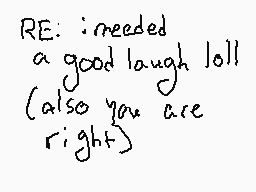 RE: i needed
a good laugh loll
(also you are
right)